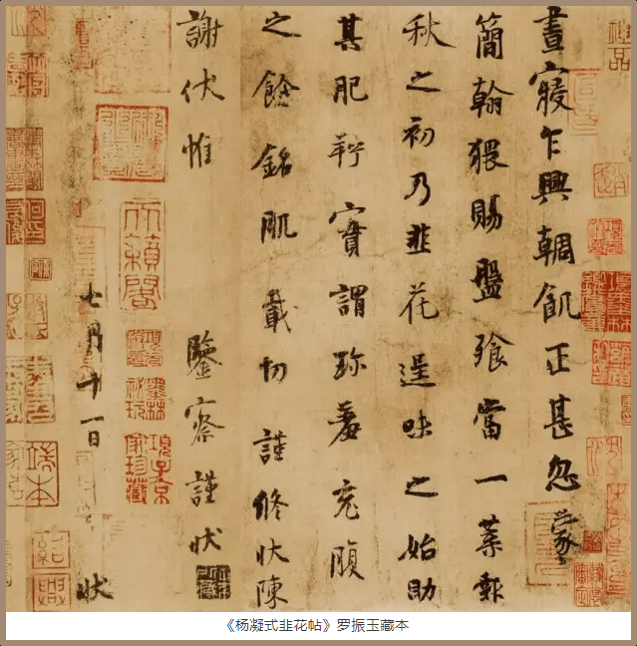 晝寢乍興輖飢正甚忽蒙
簡翰猥賜盤飧當一葉報
秋之初乃韭花逞味之始助
其肥羜實謂珎羞充腹
之餘銘肌載切謹修狀陳
謝伏惟鑒察謹狀
七月十一日狀
天籟閣
墨林祕玩
項子京家珍藏
紹興
《杨凝式韭花帖》罗振玉藏本